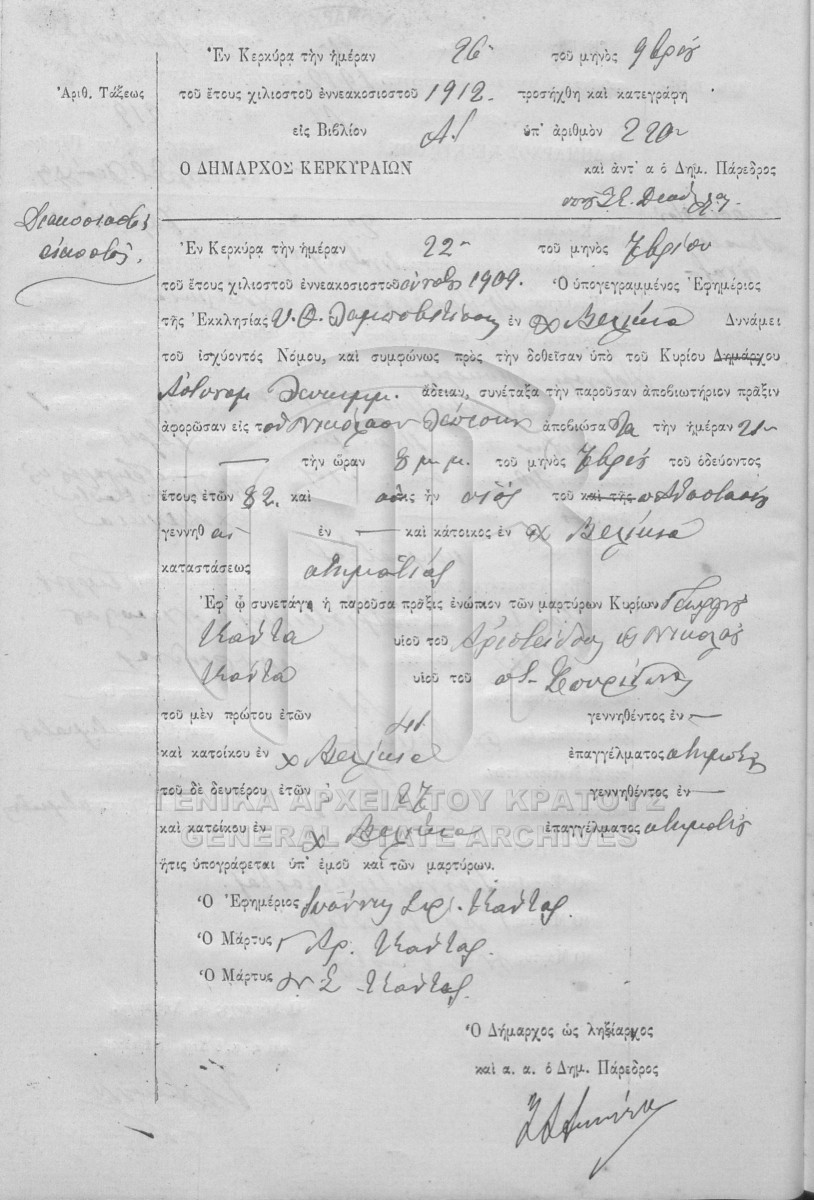 Ἐν Κερκύρᾳ τὴν ἡμέραν 26 τοῦ μηνὸς 9βρίου
Ἀριθ. Τάξεως
τοῦ ἔτους χιλιοστοῦ ἐννεακοσιοστοῦ 1912 προσήχθη καὶ κατεγράφη
εἰς Βιβλίον Α ὑπ᾽ ἀριθμὸν 220
Ο ΔΗΜΑΡΧΟΣ ΚΕΡΚΥΡΑΙΩΝ καὶ ἀντ᾽ α ὁ Δημ. Πάρεδρος
Διακοσιοστὸς
εἰκοστός.
Ἐν Κερκύρᾳ τὴν ἡμέραν 22 τοῦ μηνὸς 7βρίου
τοῦ ἔτους χιλιοστοῦ ἐννεακοσιοστοῦ ἐννάτου 1909. Ὁ ὑπογεγραμμένος Ἐφημέριος
τῆς Ἐκκλησίας Υ. Θ. ἐν χ Δυνάμει
τοῦ ἰσχύοντός Νόμου, καὶ συμφώνως πρὸς τὴν δοθεῖσαν ὑπὸ τοῦ Κυρίου Δημάρχου
Ἀστυνομ Λευκιμμ. ἄδειαν, συνέταξα τὴν παροῦσαν ἀποβιωτήριον πρᾶξιν
ἀφορῶσαν εἰς τὸν Νικόλαον ἀποβιώσαντα τὴν ἡμέραν 21
— τὴν ὥραν 8 μ.μ. τοῦ μηνὸς 7βρίου τοῦ ὁδεύοντος
ἔτους ἐτῶν 82 καὶ ὅστις ἦν υἱὸς τοῦ καὶ τῆς π Ἀναστασίου
γεννηθεὶς ἐν — καὶ κάτοικος ἐν χ
καταστάσεως κτηματίας
Ἐφ᾽ ᾧ συνετάγη ἡ παροῦσα πρᾶξις ἐνώπιον τῶν μαρτύρων Κυρίων Γεωργίου
Κάντα υἱοῦ τοῦ Ἀριστείδου κ Νικολάου
Κάντα υἱοῦ τοῦ π Σπυρίδωνος
τοῦ μὲν πρώτου ἐτῶν 41 γεννηθέντος ἐν —
καὶ κατοίκου ἐν χ ἐπαγγέλματος κτηματίου
τοῦ δὲ δευτέρου ἐτῶν 27 γεννηθέντος ἐν —
ΓΕΝΙΚΑ ΑΡΧΕΙΑ ΤΟΥ ΚΡΑΤΟΥΣ
καὶ κατοίκου ἐν χ ἐπαγγέλματος κτηματίου
GENERAL STATE ARCHIVES
ἥτις ὑπογράφεται ὑπ᾽ ἐμοῦ καὶ τῶν μαρτύρων.
Ὁ Ἐφημέριος Ἰωάννης Κάντας
Ὁ Μάρτυς Γ Ἀρ. Κάντας
Ὁ Μάρτυς Ν Σ Κάντας
Ὁ Δήμαρχος ὡς ληξίαρχος
καὶ α. α. ὁ Δημ. Πάρεδρος